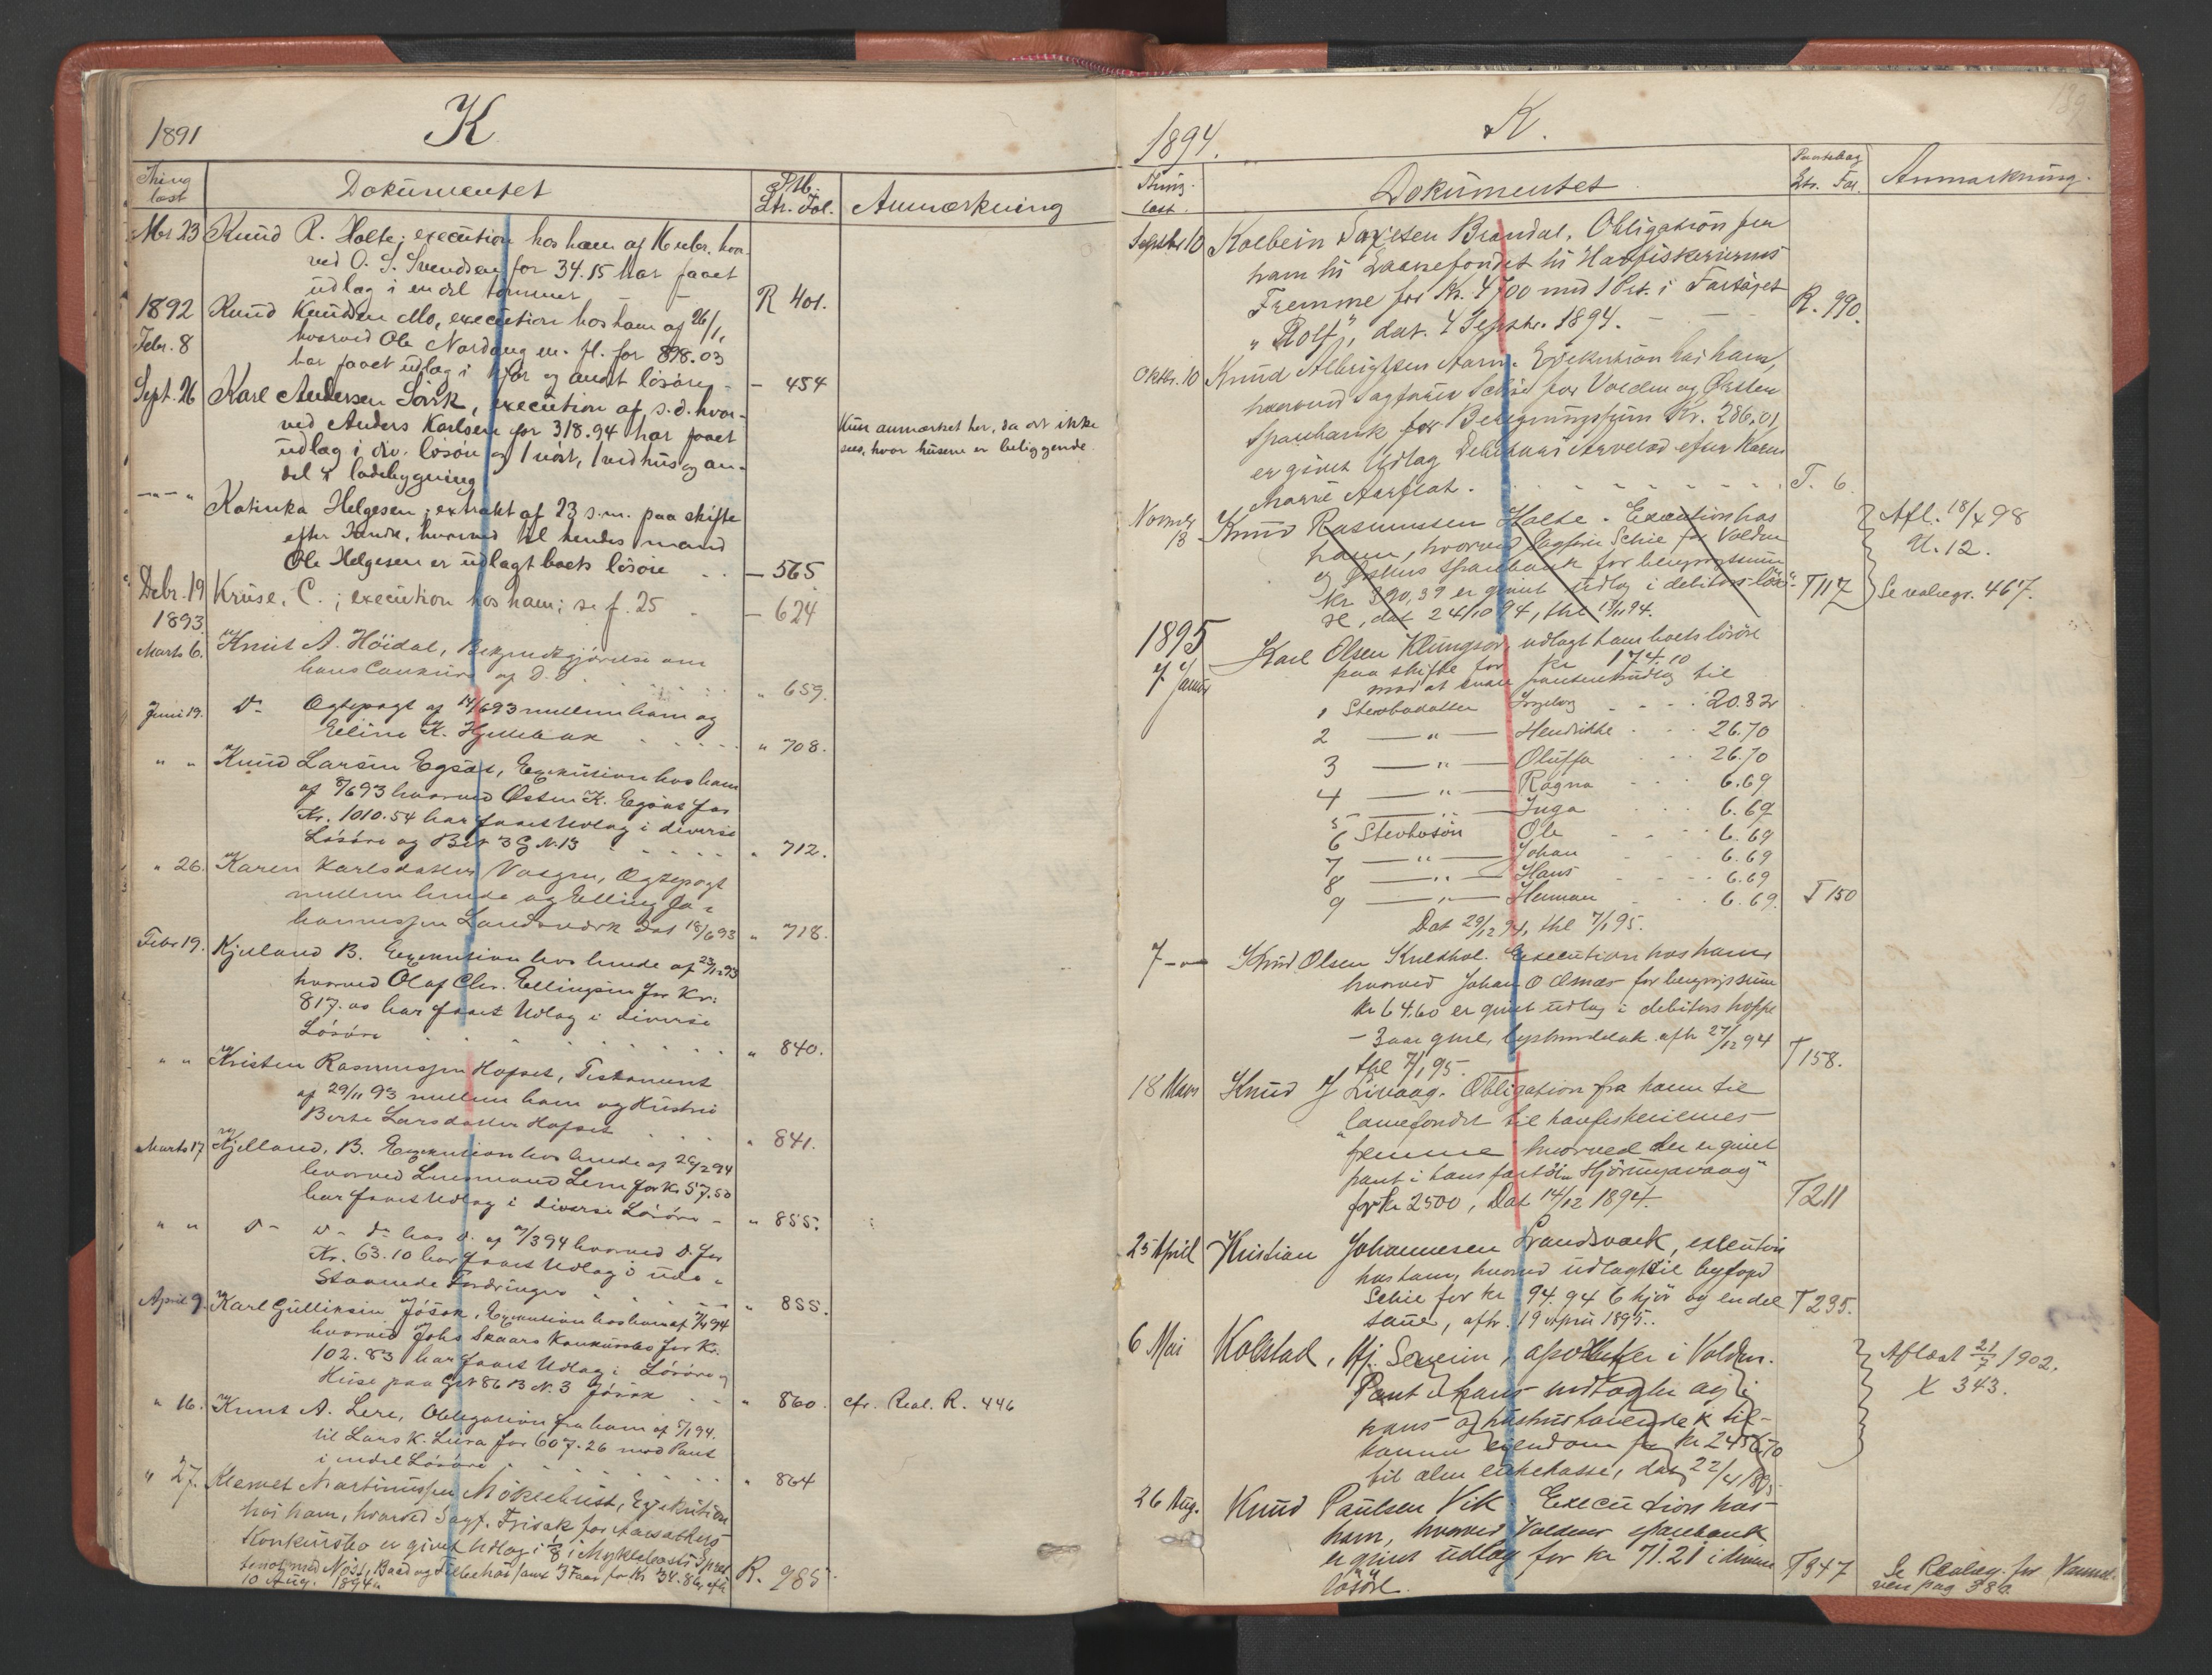 1891
K
Thing
læst
Dokumentet
P.M.
Ltr. Fol.
Anmærkning
Mr 23 Knud R. Holte; execution hos ham af 16 nvbr. hvor-
ved O. S. Svendsen for 34.15 har faaet
udlæg i en del tømmer — R 401.
1892 Knud Knudsen Mo, execution hos ham af 26/1,
Febr. 8 hvorved Ole Nordang m. fl. for 898.03
har faaet udlæg i kjør og andet løsøre — 454
Sept. 26 Karl Andersen Sørvk, execution af s. d. hvor-
ved Anders Karlsen for 318.94 har faaet
Kun anmærket her, da det ikke
udlæg i div. løsøre og 1 nøst, 1 vedhus og an-
sees, hvor husene er beliggende.
del i ladebygning
— " — " Katinka Helgesen; extrakt af 23 s. m. paa skifte
efter hende, hvorved til hendes mand
Ole Helgesen er udlagt boets løsøre . . — 565
Debr. 19 Kruse, C.; execution hos ham; se f. 25 — 624
1893
Marts 6. Knut A. Höidal, Bekjendtgjørelse om
hans Conkurs af D. D. " 659.
Juni 19. Do Ögtepagt af 14/6 93 mellem ham og
Eline K. Hjellebak " 708.
" " Knud Larsen Egsæt, Exekution hos ham
af 8/6 93 hvorved Østen K. Egsæt for
Kr. 1010.54 har faaet Udlæg i diverse
Løsøre og B.N. 3 G.N. 13 " 712.
" 26. Karen Karlsdatter Vatgen, Ögtepagt
mellem hende og Elling Jo-
hannessen Landsverk Dat 18/6 93 " 718.
Febr 19. Kjelland B. Exekution hos hende af 23/12 93
hvorved Olaf Chr. Ellingsen for Kr.
817.00 har faaet Udlæg i diverse
Løsøre " 840.
" " Kristen Rasmussen Hofset, Testament
af 29/11 93 mellem ham og Hustru
Berte Larsdatter Hofset " 841.
Marts 17 Kjelland, B. Exekution hos hende af 26/2 94
hvorved Lensmand Lem for Kr 57.50
har faaet Udlæg i diverse Løsøre — " 855.
" " Do Do Do hos D. af 7/3 94 hvorved D. for
Kr. 63.10 har faaet Udlæg i ude-
staaende Fordringer " 855.
April 9. Karl Gulliksen Jösok, Exekution hos ham af 7/4 94
hvorved Johs Skaars Konkursbo for Kr.
102.83 har faaet Udlæg i Løsøre og
Huse paa GN 86 B.N. 3 Jösok " 860. cfr. Real. R. 446
" 16. Knut A. Lere, Obligation fra ham af 5/1 94.
til Lars K. Lura for 607.26 mod Pant
i endel Løsøre " 864
" 27. Klemet Martinussen Möklebust, Exekution
hos ham, hvorved Sagf. Frisak for Aarsæthers
Konkursbo er givet Udlæg i 1/8 i Myklebost
med Nöst, Baad og Tilbehör samt 3 Faar for Kr 34.86, efter
10 Aug. 1894. R. 985.
139
1894.
K.
Thing-
læst.
Dokumentet
Pantebog
Ltr. Fol.
Anmærkning.
Septbr 10 Kolbein Brandal, Obligation fra
ham til Laanefondet til Havfiskeriernes
Fremme for Kr. 4700 med 1 Prt. i Fartöiet
"Rolf", dat. 4 Septbr. 1894. — — R. 990.
Oktbr. 10 Knud Albrigtsen Aarn. Exekution hos ham,
hvorved Sagförer Schie for Volden og Ørsten
Sparebank for Beregningssum Kr. 286,01,
er givet Udlæg Debitors Arvelod efter Karen
Marie Aarflot. T. 6.
Novmbr
13 Knud Rasmussen Holte. Execution hos
Afl. 18/4 98
ham, hvorved Sagfører Schie for Volden
U. 12.
og Østens sparebank for beregnssum
kr 390,39 er givet udlæg i debitors løsø-
T 117 Se realregr. 467.
re, dat 24/10 94, thl 13/11 94.
1895
7 Januar Karl Olsen Klungsør udlagt ham boets løsøre
paa skifte for kr 174.10
mod at svare panteutlæg til
1 Stevbodatter Ingeborg 20.82
2 — " — Hendrikke 26.70
3 — " — Oluffa 26.70
4 — " — Ragna 6.69
5 — " — Inga 6.69
6 Stevbosøn Ole 6.69
7 — " — Johan 6.69
8 — " — Hans 6.69
9 — " — Herman 6.69. T 150
Dat 29/12 94, thl 7/1 95.
7 — " — Knud Olsen Kulthol. Execution hos ham
hvorved Johan O Almæs for beregnssum
kr 64.60 er givet udlæg i debitors hoppe
— 3 aar gml. afh 27/12 94
thl 7/1 95. T 158.
18 Mars Knud J Livaag. Obligation fra ham til
"lanefondet til havfiskeriernes
fremme" hvorved der er givet
pant i hans fartöi "Hjörungavaag"
for kr 2500, Dat 14/12 1894. T 211
25 April Kristian Johannesen Landsværk, execution
hos ham, hvorved udlagt til byfogd
Schie for kr 94.94 6 kjör og endel T 295.
sauer, afh. 19 April 1895.
6 Mai Kobstad, Hj. Severin, apotheker i Volden.
Aflæst 21/7 1902.
Pant i hans
X 343.
hans og hustrus
eiendom for kr 2456.70
til alm enkekasse, dat 22/4 1895
26 Aug. Knud Paulsen Vik. Execution hos
ham, hvorved Voldens sparebank
er givet udlæg for kr 71.21 i diverse
T 347 Se Realreg. for
løsøre. pag 380.